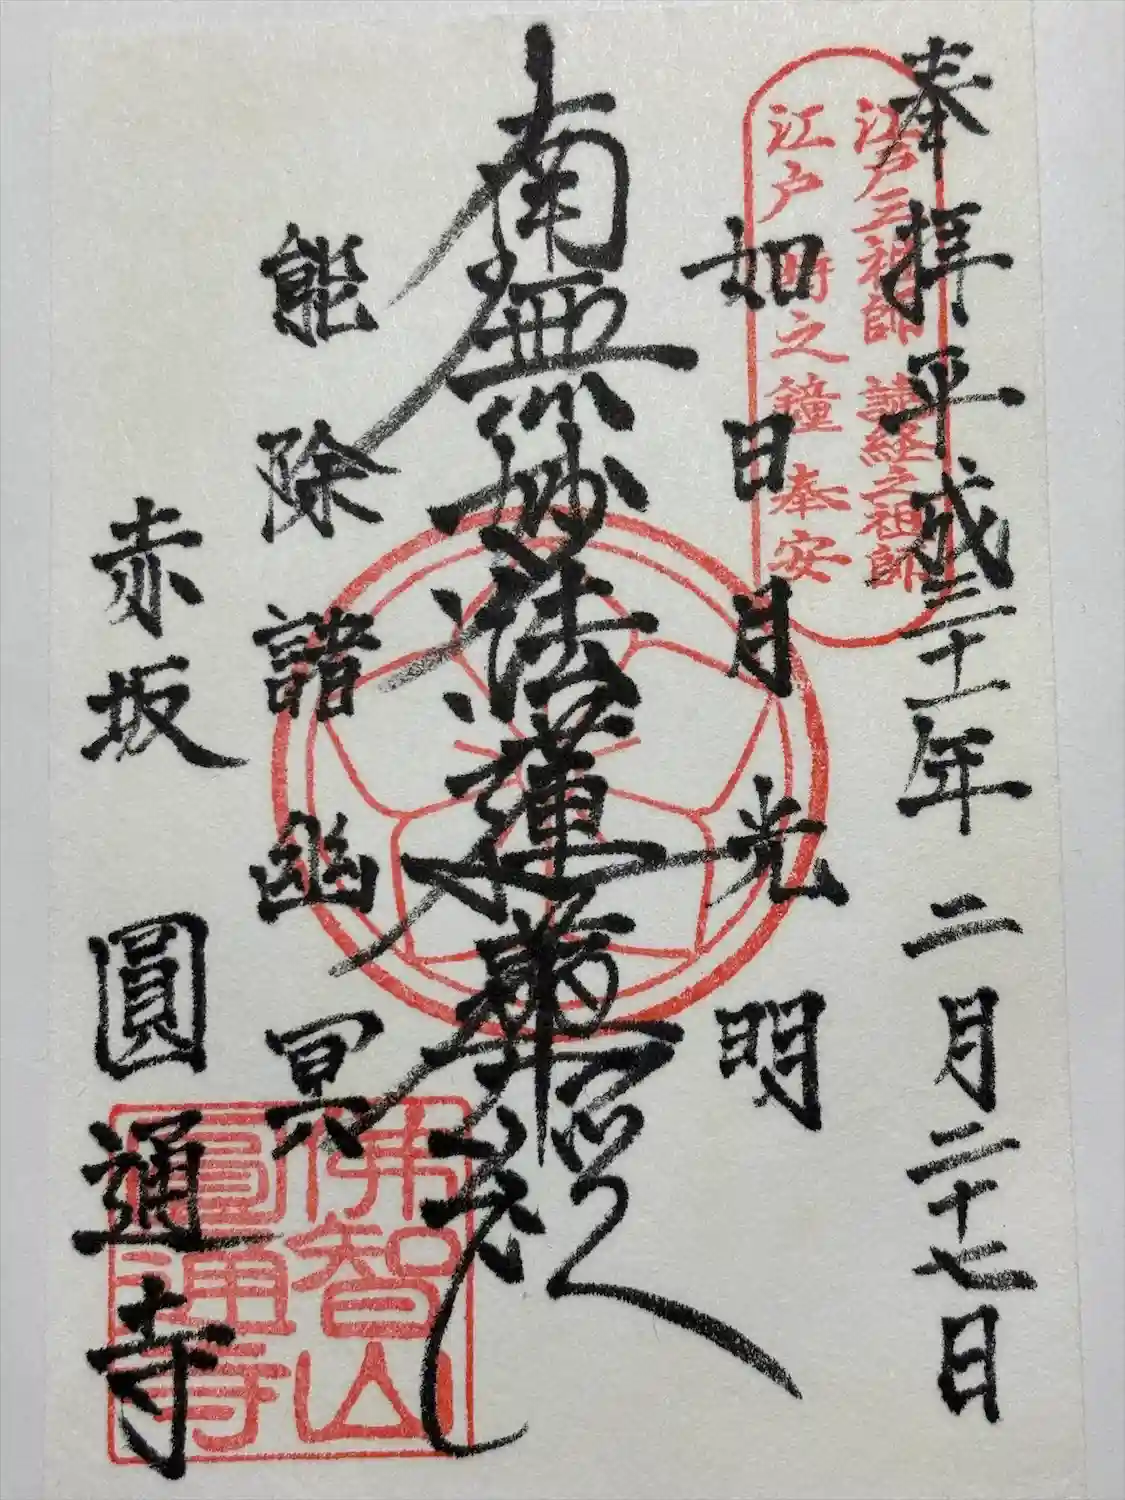 奉拝平成三十一年二月二十七日
江戸三祖師 読経之祖師
江戸 時之鐘 奉安
如日月光明
南無妙法蓮華経
能除諸幽冥
赤坂 圓通寺
佛智山
圓通寺